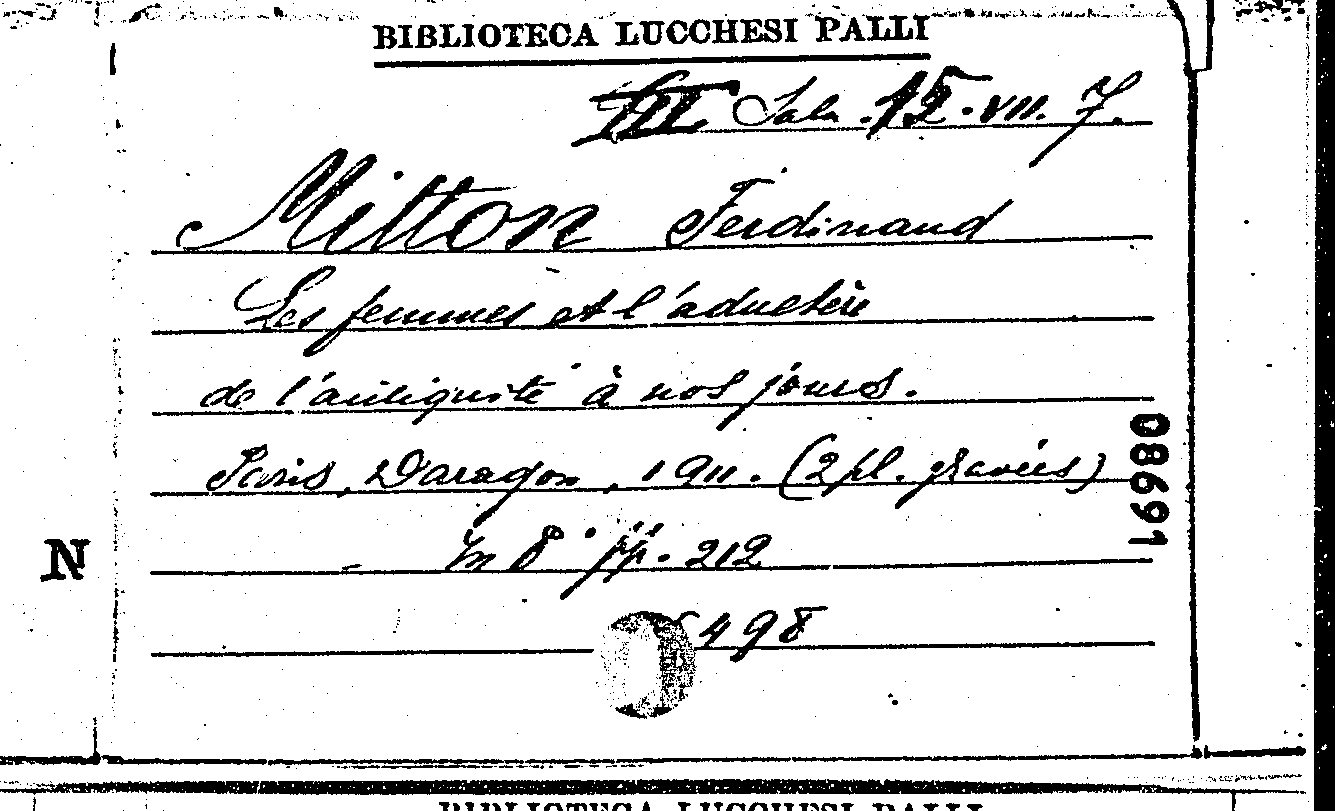 BIBLIOTECA LUCCHESI PALLI
III Sala 15. VII. 7.
Mitton Ferdinand
Les femmes et l'adultère
de l'antiquité à nos jours.
Paris, Daragon, 1911. (2 pl. gravées)
in 8° pp. 212
498
08691
N
BIBLIOTECA LUCCHESI PALLI